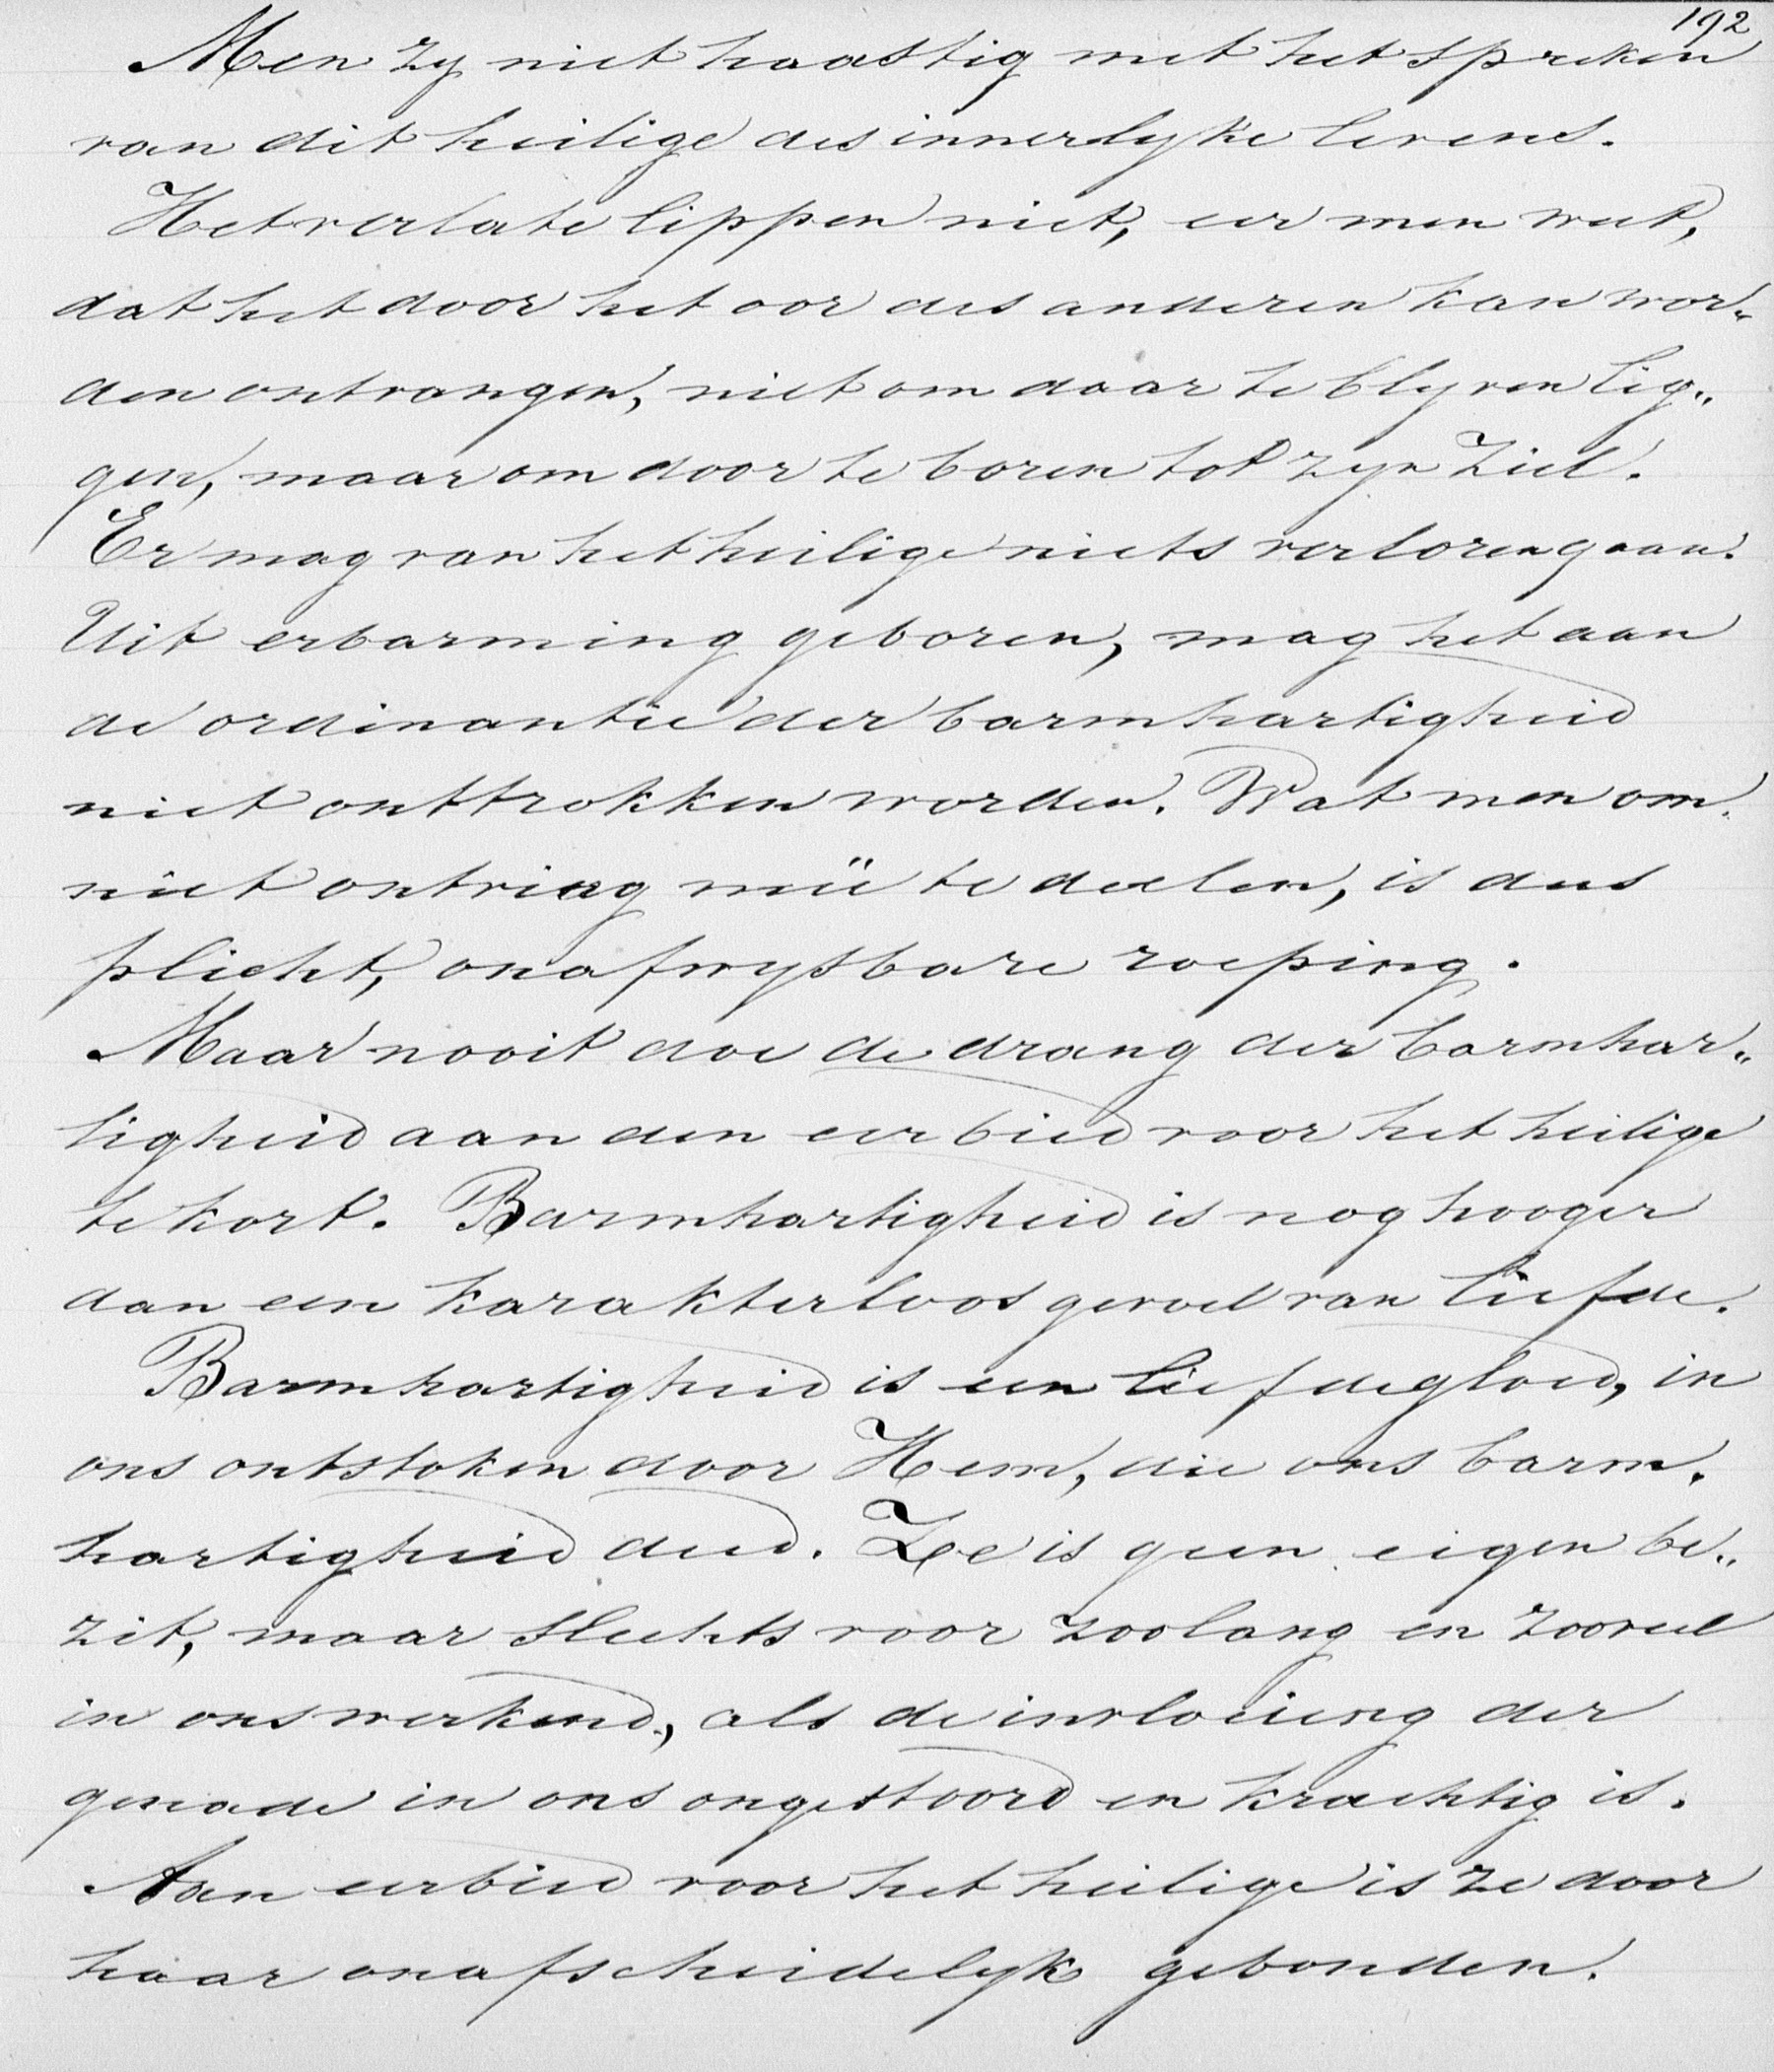 192
Men zy niet haastig met het spreken
van dit heilige des innerlyke levens.
Het verlate lippen niet, eer men weet,
dat het door het oor des anderen kan wor„
den ontvangen, niet om daar te blyven lig„
gen, maar om door te boren tot zyn ziel.
Er mag van het heilige niets verloren gaan.
Uit erbarming geboren, mag het aan
de ordinantie der barmhartigheid
niet onttrokken worden. Wat men om
niet ontving meê te deelen, is dus
plicht, onafwysbare roeping.
Maar nooit doe de drang der barmhar„
tigheid aan den eerbied voor het heilige
te kort. Barmhartigheid is nog hooger
dan een karakterloos gevoel van liefde.
Barmhartigheid is een liefdegloed, in
ons ontstoken door Hem, die ons barm.
hartigheid deed. Ze is geen eigen be„
zit, maar slechts voor zoolang en zooveel
in ons werkend, als de invloeiing der
genade in ons ongestoord en krachtig is.
Aan eerbied voor het heilige is ze door
haar onafscheidelyk gebonden.